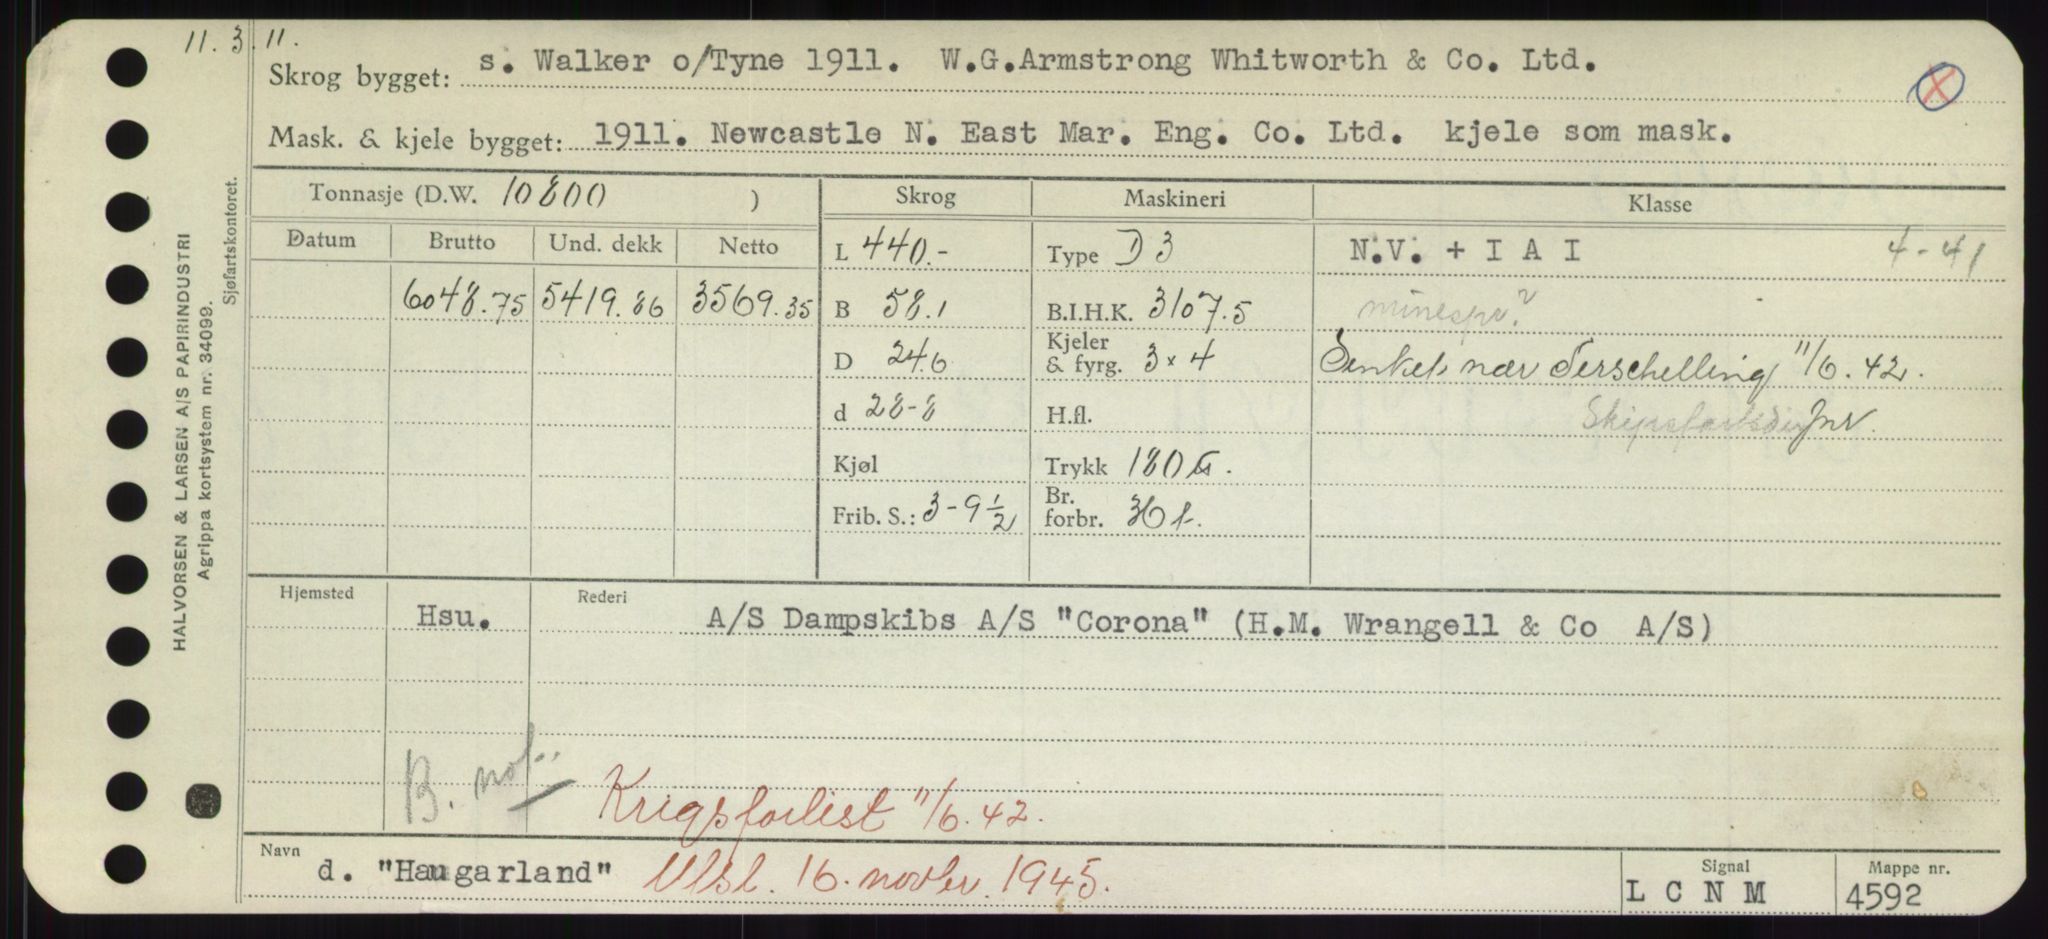 11. 3. 11.
Skrog bygget: s. Walker o/Tyne 1911. W.G.Armstrong Whitworth & Co. Ltd.
X
Mask. & kjele bygget: 1911. Newcastle N. East Mar. Eng. Co. Ltd. kjele som mask.
Tonnasje (D.W. 10800 ) Skrog Maskineri Klasse
Datum Brutto Und. dekk Netto
L 440.- Type D 3 N.V. + I A I 4-41
6048.75 5419.86 3569.35 B 58.1 B.I.H.K. 3107.5 minespr.?
D 24.6 Kjeler & fyrg. 3 x 4 Senket nær Terschelling 11/6. 42.
d 28-8 H.fl. Skipsfartsdir
Kjøl Trykk 180
Frib. S.: 3-9 1/2 Br. forbr. 36 t.
Hjemsted Hsu. Rederi A/S Dampskibs A/S "Corona" (H.M. Wrangell & Co A/S)
B. not.
Krigsforlist 11/6. 42.
Navn d. "Haugarland" Utsl. 16. novbr. 1945.
Signal L C N M
Mappe nr. 4592
HALVORSEN & LARSEN A/S PAPIRINDUSTRI
Agrippa kortsystem nr. 34099.
Sjøfartskontoret.